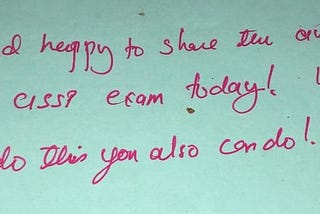 happy to share
CISSP exam today!
do this you also can do!